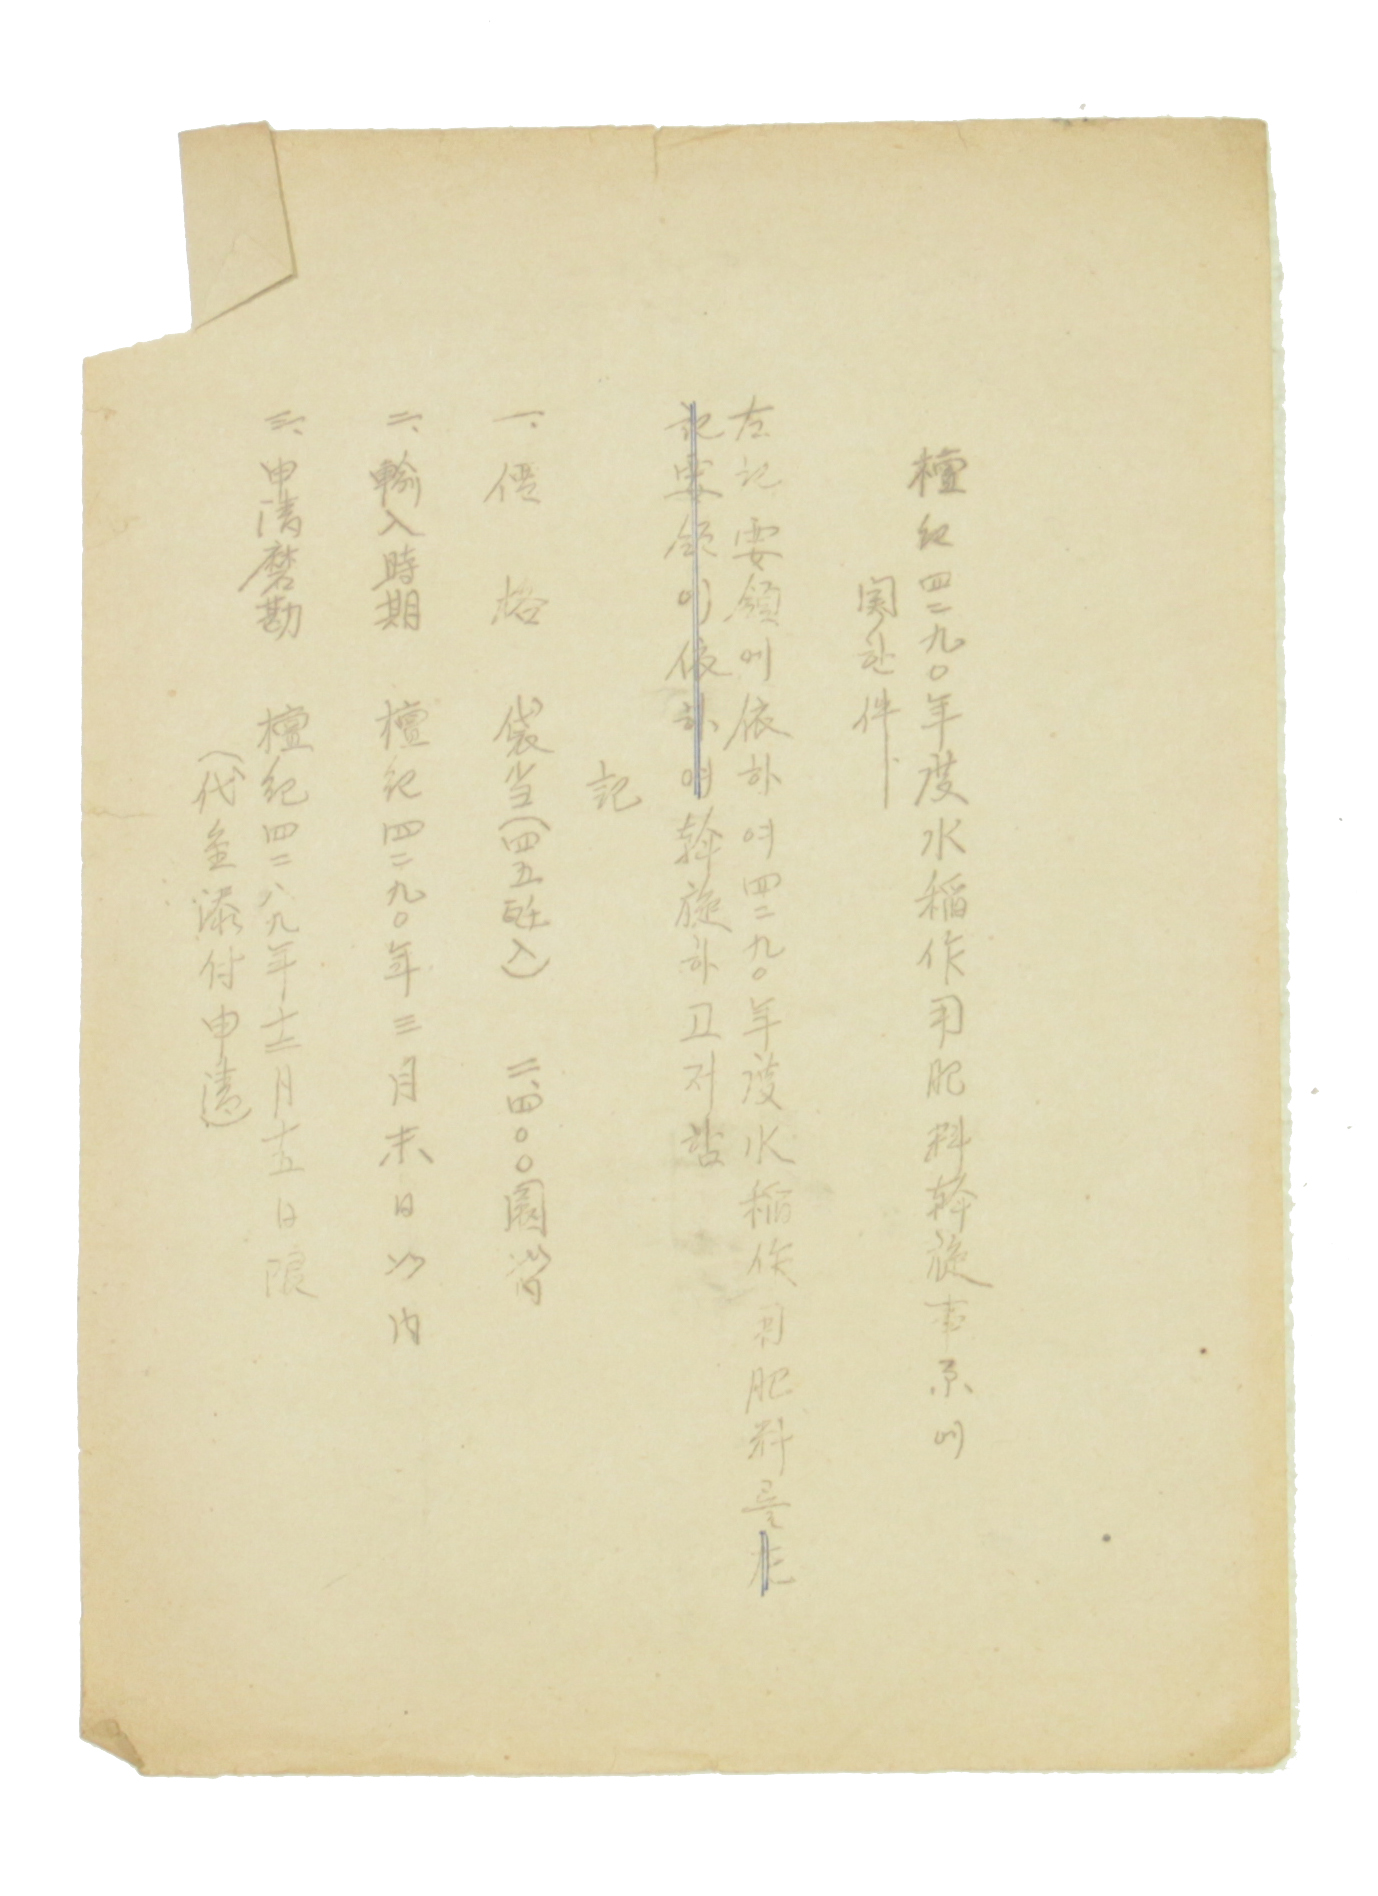 檀紀四二九〇年度水稲作用肥料斡旋事案에
関한件
左記要領에依하여四二九〇年度水稲作用肥料를左
記要領에依하여斡旋하고저함
記
一、價格 袋当(四五瓩入) 二、四〇〇圜
二、輸入時期 檀紀四二九〇年三月末日以内
三、申請磨勘 檀紀四二八九年十二月十五日限
(代金添付申請)